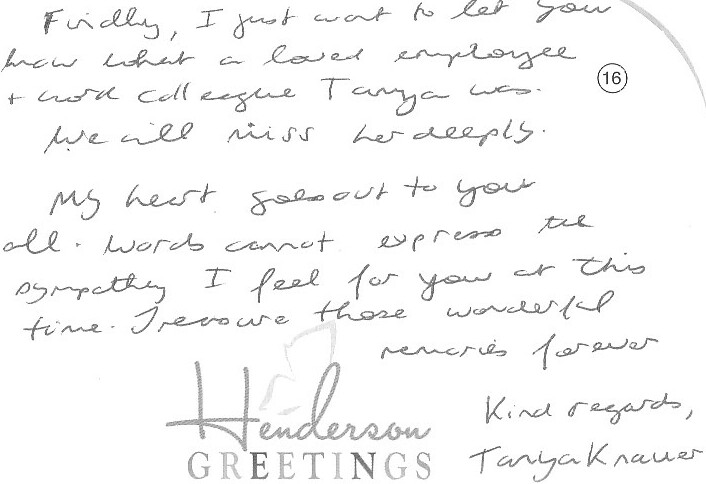 Finally, I just want to let you
know what a loved employee
+ work colleague Tanya was.
We will miss her deeply.
16
My heart goes out to you
all. Words cannot express the
sympathy I feel for you at this
time. Treasure those wonderful
memories forever
Kind regards,
Tanya Knauer
Henderson
GREETINGS